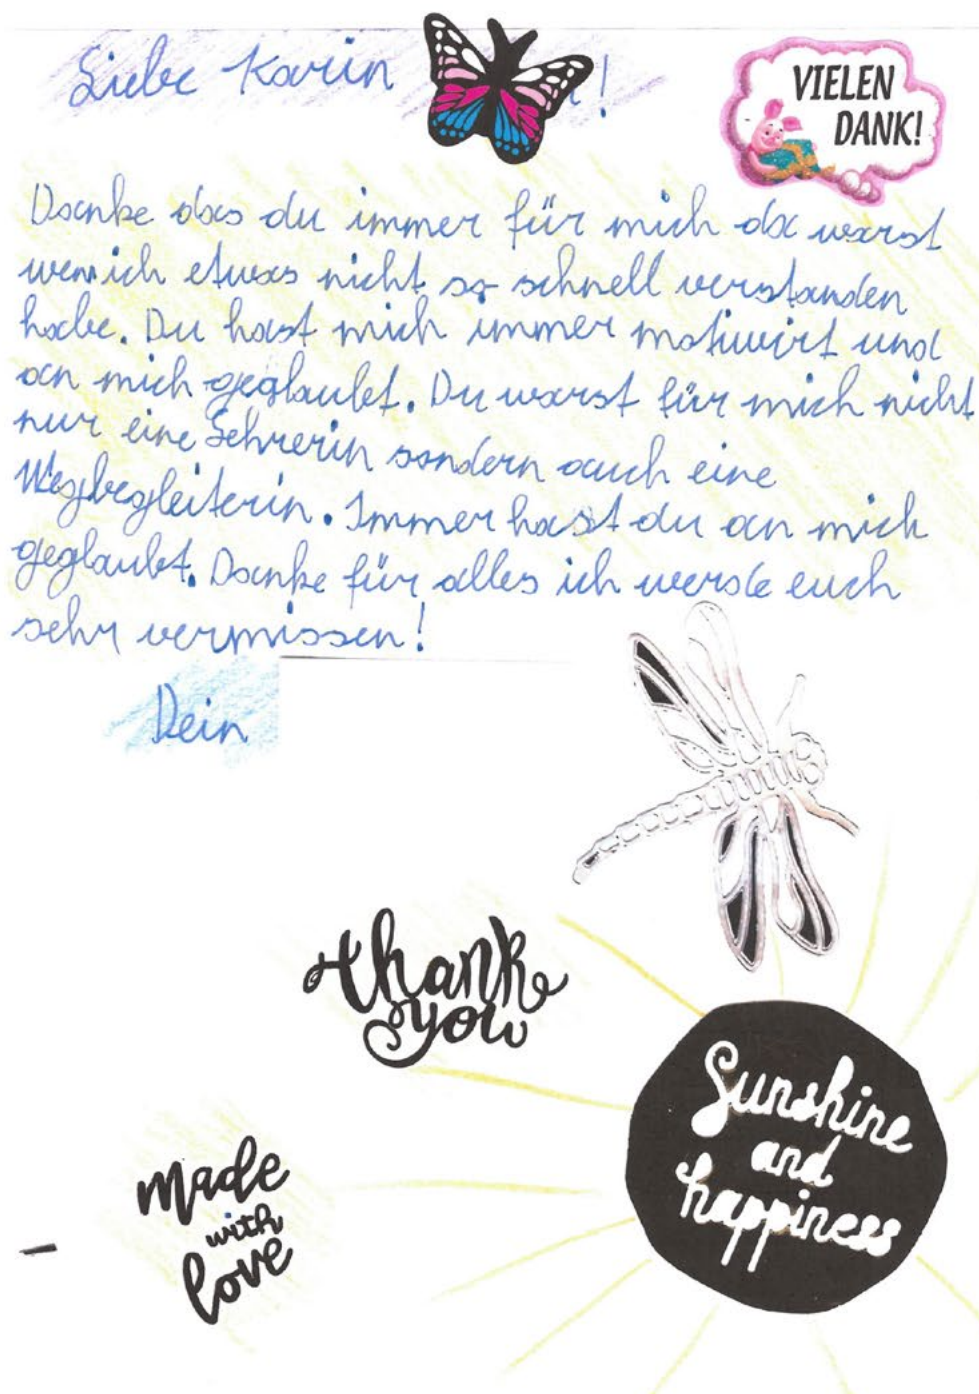 Liebe Karin !
VIELEN
DANK!
Danke das du immer für mich da warst
wen ich etwas nicht so schnell verstanden
habe. Du hast mich immer motiwirt und
an mich geglaubt. Du warst für mich nicht
nur eine Lehrerin sondern auch eine
Wegbegleiterin. Immer hast du an mich
geglaubt. Danke für alles ich werde euch
sehr vermissen!
Dein
thank
you
Sunshine
and
happiness
made
with
love